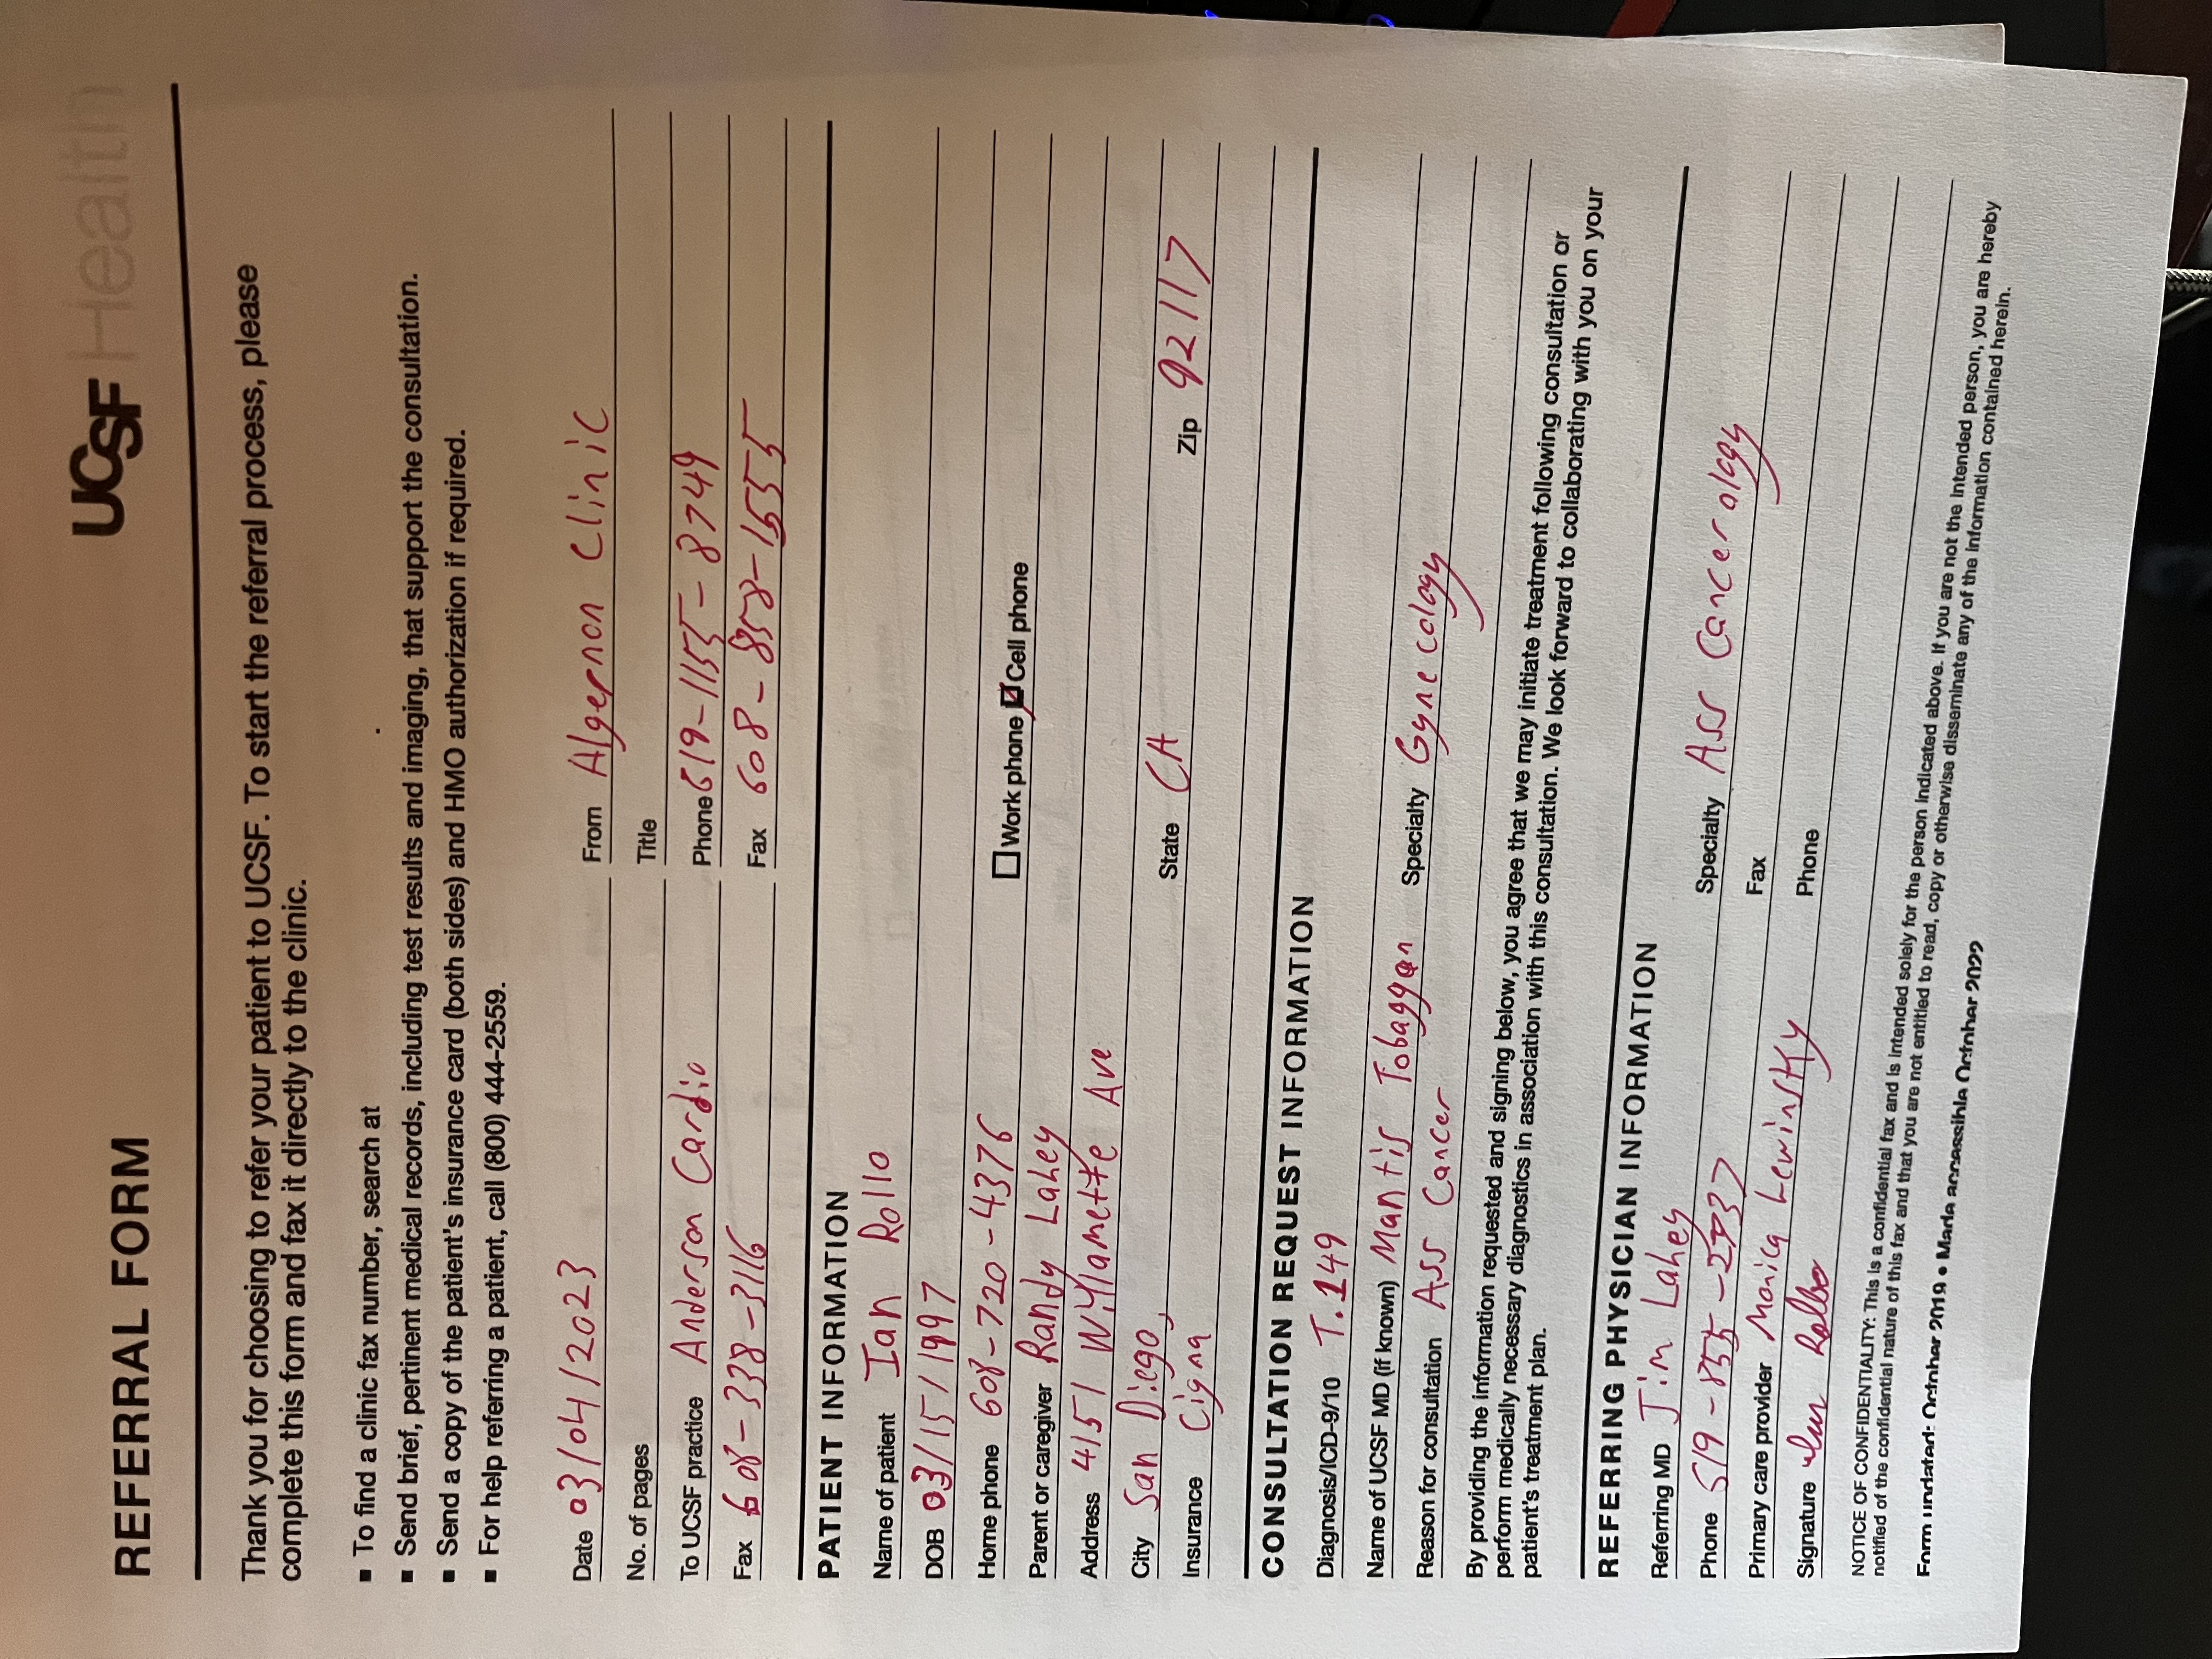 REFERRAL FORM
UCSF Health
Thank you for choosing to refer your patient to UCSF. To start the referral process, please
complete this form and fax it directly to the clinic.
▪ To find a clinic fax number, search at
▪ Send brief, pertinent medical records, including test results and imaging, that support the consultation.
▪ Send a copy of the patient's insurance card (both sides) and HMO authorization if required.
▪ For help referring a patient, call (800) 444-2559.
Date 03/04/2023 From Algernon Clinic
No. of pages Title
To UCSF practice Anderson Cardio Phone 619-1155-8749
Fax 608-338-3116 Fax 608-858-1555
PATIENT INFORMATION
Name of patient Ian Rollo
DOB 03/15/1997
Home phone 608-720-4376 ☐ Work phone ☑ Cell phone
Parent or caregiver Randy Lahey
Address 4151 Willamette Ave
City San Diego, State CA Zip 92117
Insurance Cigna
CONSULTATION REQUEST INFORMATION
Diagnosis/ICD-9/10 T.149
Name of UCSF MD (if known) Mantis Tobaggan Specialty Gynecology
Reason for consultation Ass Cancer
By providing the information requested and signing below, you agree that we may initiate treatment following consultation or
perform medically necessary diagnostics in association with this consultation. We look forward to collaborating with you on your
patient's treatment plan.
REFERRING PHYSICIAN INFORMATION
Referring MD Jim Lahey
Phone 519-855-2737 Specialty Ass Cancerology
Primary care provider Monica Lewinsky Fax
Signature Ian Rollo Phone
NOTICE OF CONFIDENTIALITY: This is a confidential fax and is intended solely for the person indicated above. If you are not the intended person, you are hereby
notified of the confidential nature of this fax and that you are not entitled to read, copy or otherwise disseminate any of the information contained herein.
Form updated: October 2019 • Made accessible October 2022